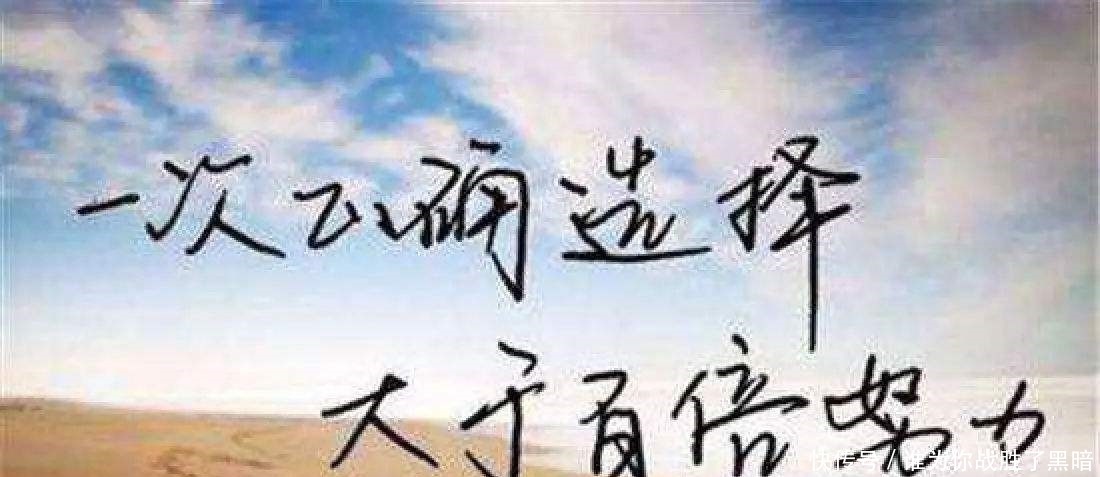 一次正确选择
大于百倍努力
快传号/唯为你战胜了黑暗